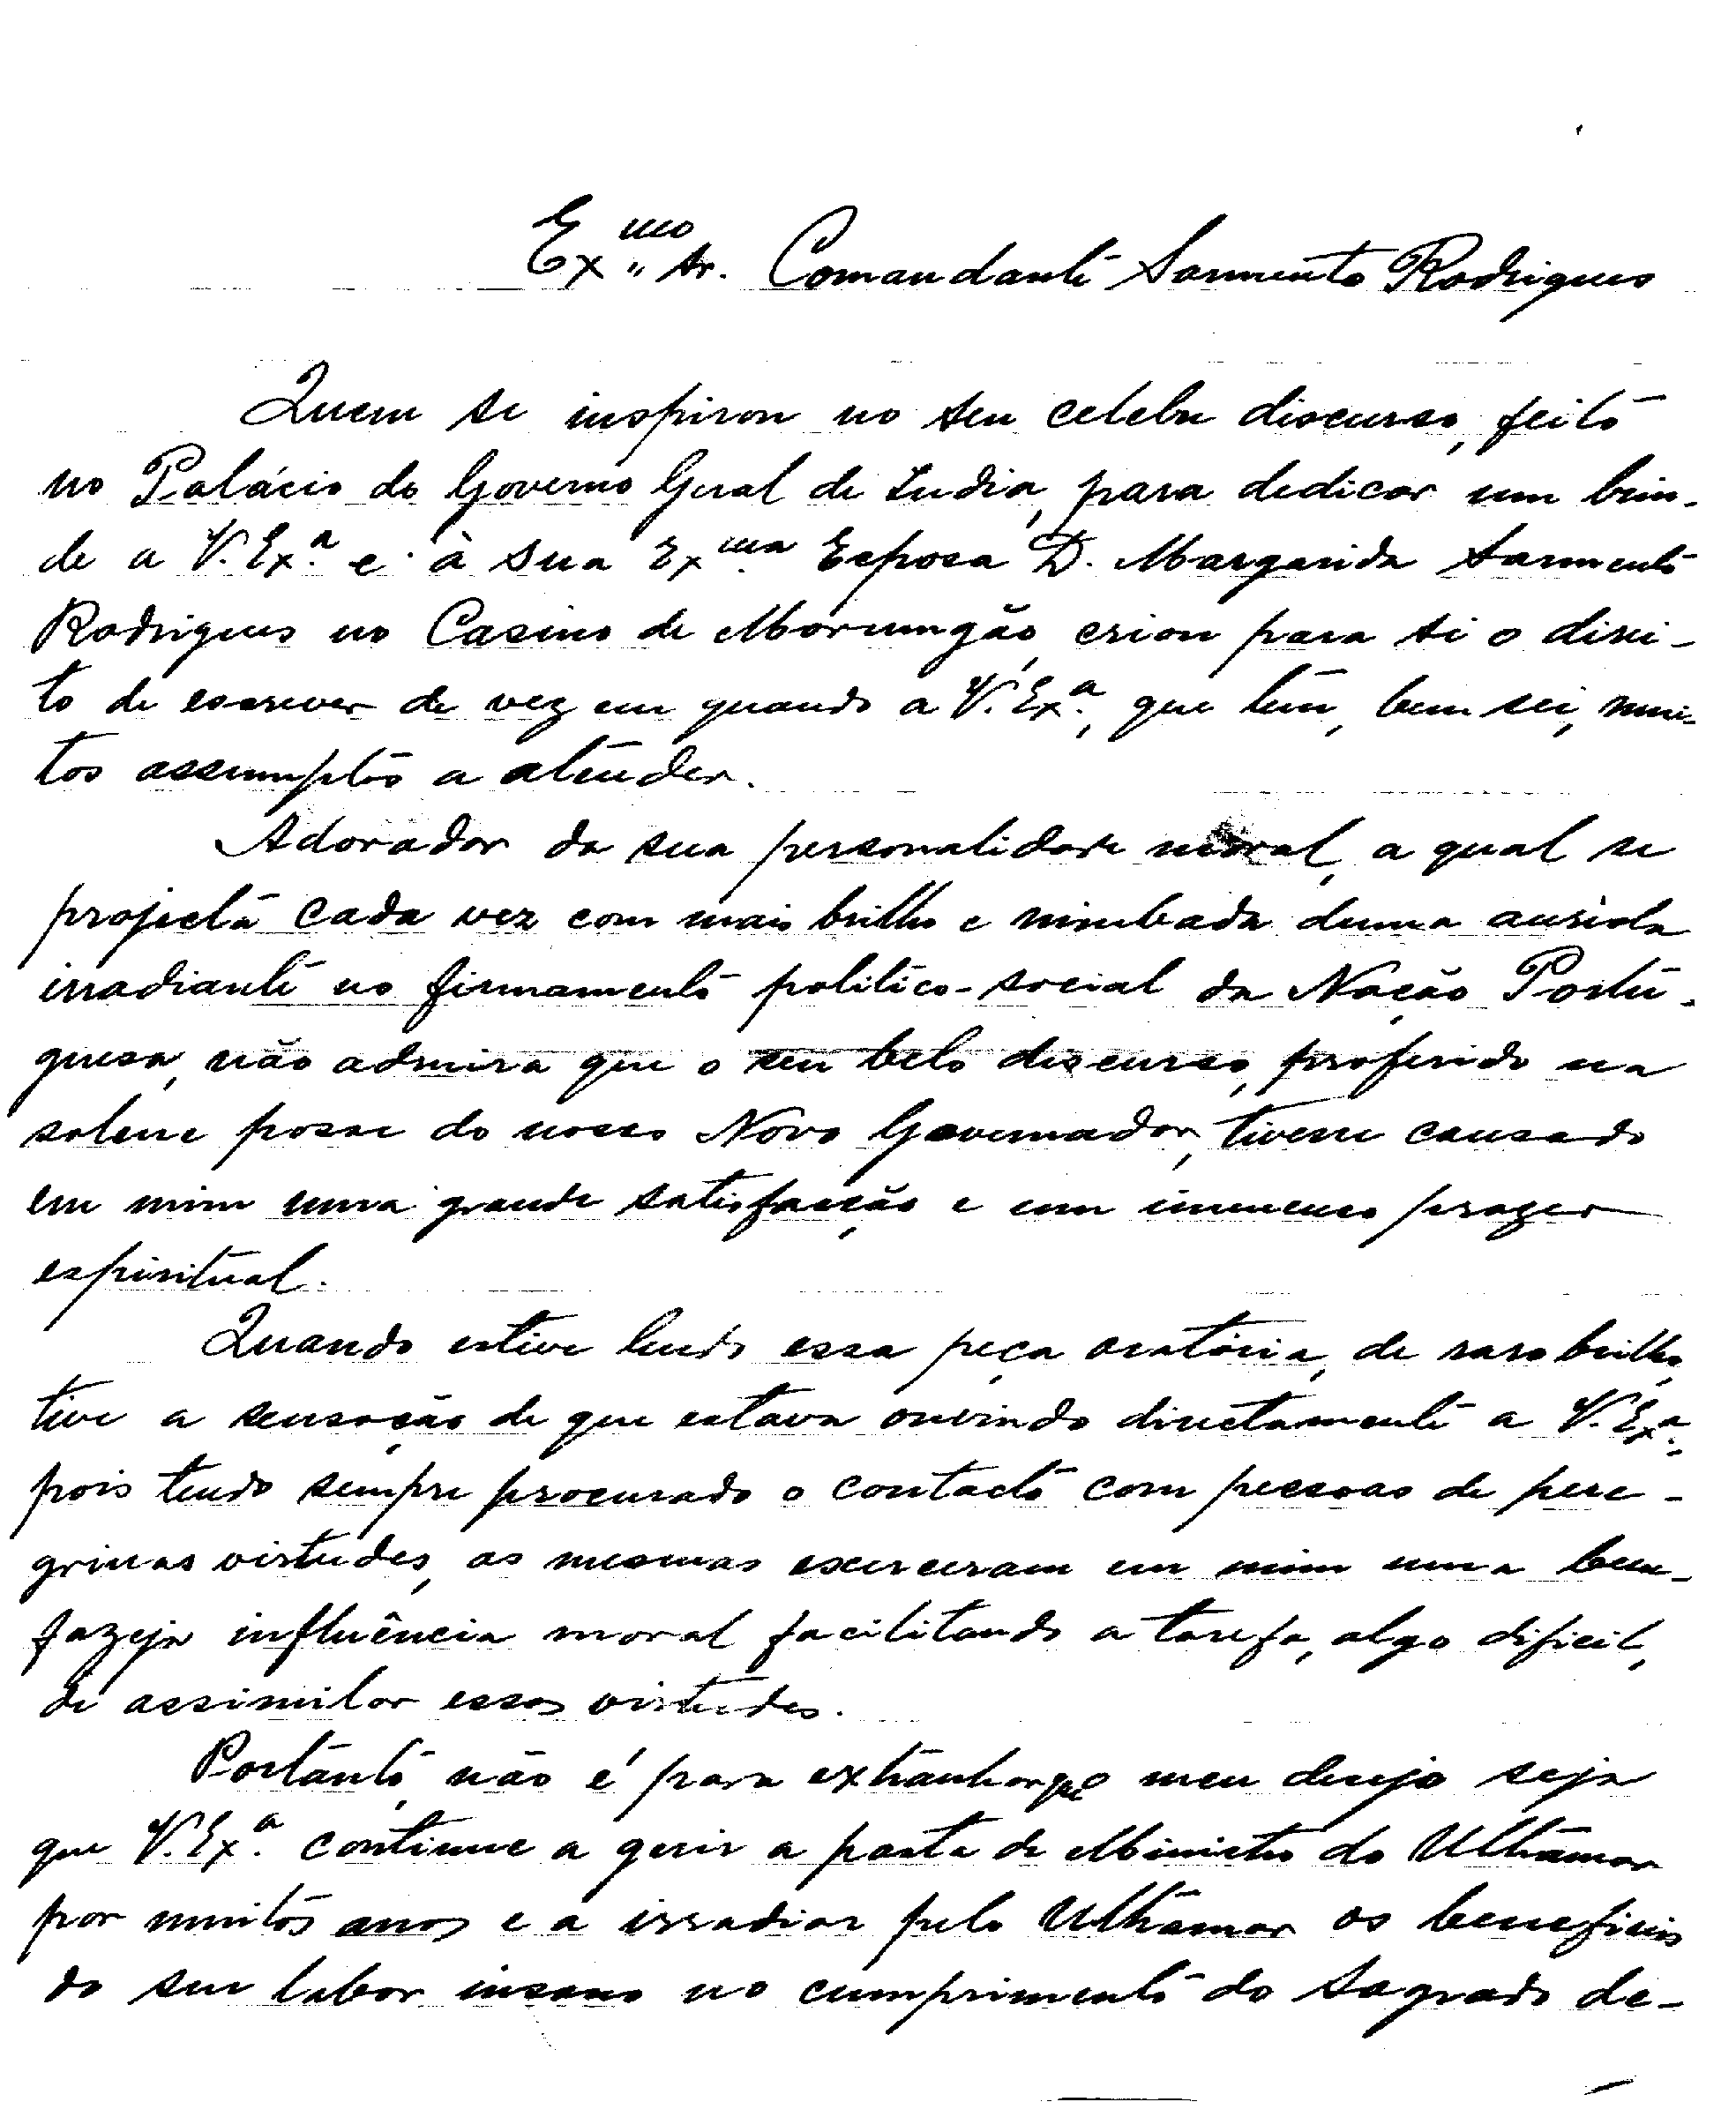 Ex.mo Sr. Comandante Sarmento Rodrigues
Quem se inspirou no seu celebre discurso, feito
no Palácio do Governo Geral de India, para dedicar um brin-
de a V. Ex.a e à sua Ex.ma Esposa D. Margarida Sarmento
Rodrigues no Casino de Mormugão, criou para si o direi-
to de escrever de vez em quando a V. Ex.a, que tem, bem sei, mui-
tos assumptos a atender.
Adorador da sua personalidade moral, a qual se
projecta cada vez com mais brilho e nimbada duma auriola
irradiante no firmamento politico-social da Nação Portu-
guesa, não admira que o seu belo discurso, proferido na
solene posse do nosso Novo Governador, tivesse causado
em mim uma grande satisfação e um immenso prazer
espiritual.
Quando estive lendo essa peça oratória, de raro brilho,
tive a sensação de que estava ouvindo directamente a V. Ex.a,
pois tendo sempre procurado o contacto com pessoas de pere-
grinas virtudes, as mesmas exerceram em mim uma bem-
fazeja influência moral facilitando a tarefa, algo dificil,
de assimilar essas virtudes.
Portanto, não é para extranhar que o meu desejo seja
que V. Ex.a continue a gerir a pasta de Ministro do Ultramar
por muitos anos e a irradiar pelo Ultramar os beneficios
do seu labor insano no cumprimento do sagrado de-